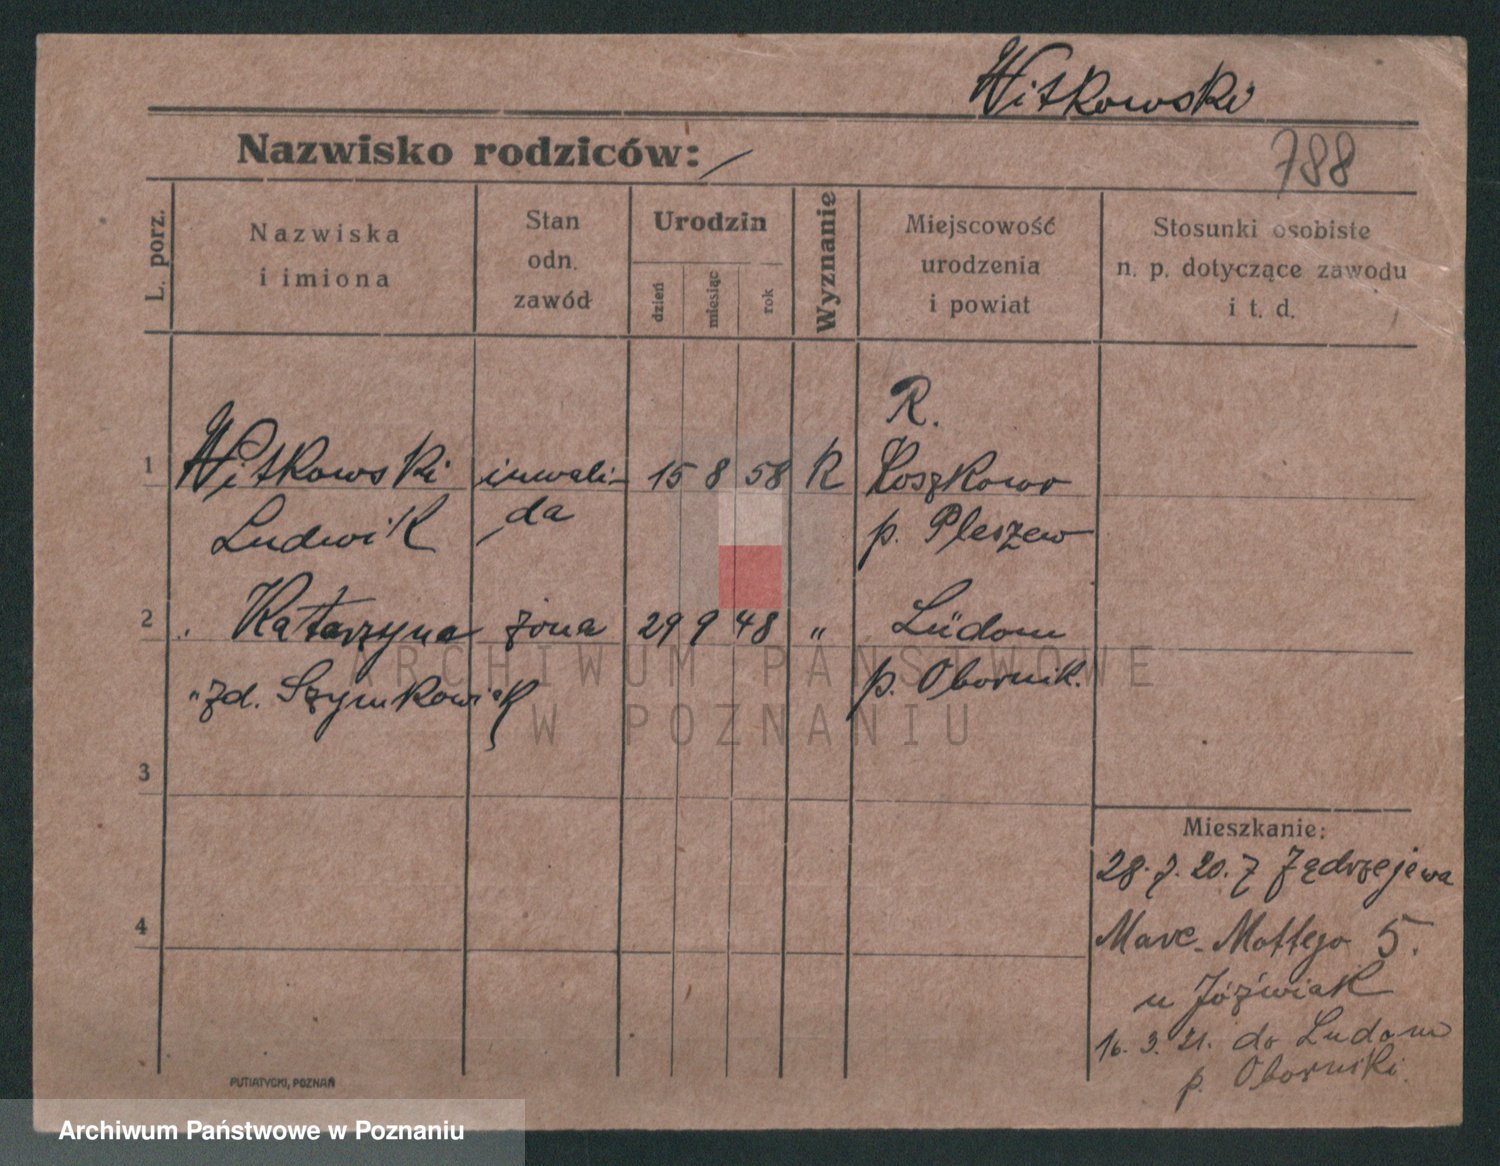 Witkowski
Nazwisko rodziców: /
788
L. porz.
Nazwiska
i imiona
Stan
odn.
zawód
Urodzin
dzień
miesiąc
rok
Wyznanie
Miejscowość
urodzenia
i powiat
Stosunki osobiste
n. p. dotyczące zawodu
i t. d.
R.
1 Witkowski inwali- 15 8 58 K Koszkowo
Ludwik da p. Pleszew
2 Katarzyna żona 29 9 48 " Lüdom
"zd. Szymkowiak p. Obornik.
3
4
Mieszkanie:
28. 7. 20. z Jędrzejewa
Marc. Mottego 5.
u Jóźwiak
16. 3. 21. do Ludom
p. Oborniki.
PUTIATYCKI, POZNAŃ
ARCHIWUM PAŃSTWOWE
W POZNANIU
Archiwum Państwowe w Poznaniu